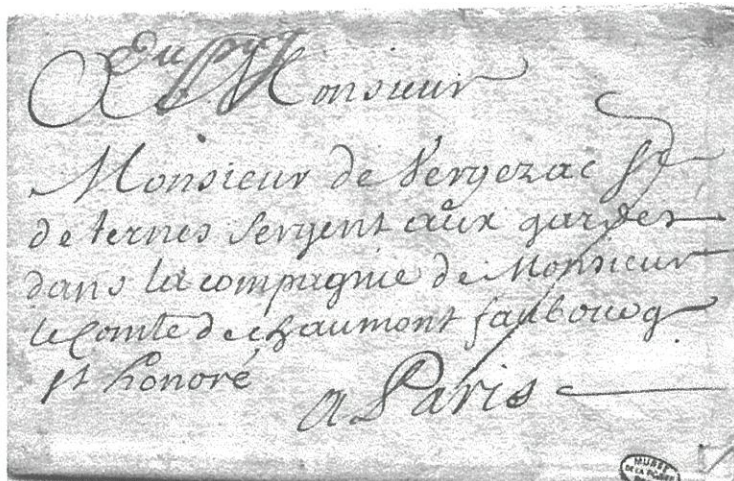 Du puy
A Monsieur
Monsieur de Vergezac Sr
de ternes Sergent aux gardes
dans la compagnie de Monsieur
le Comte de chaumont faubourg
st honoré
a Paris
MUSÉE
DE LA POSTE